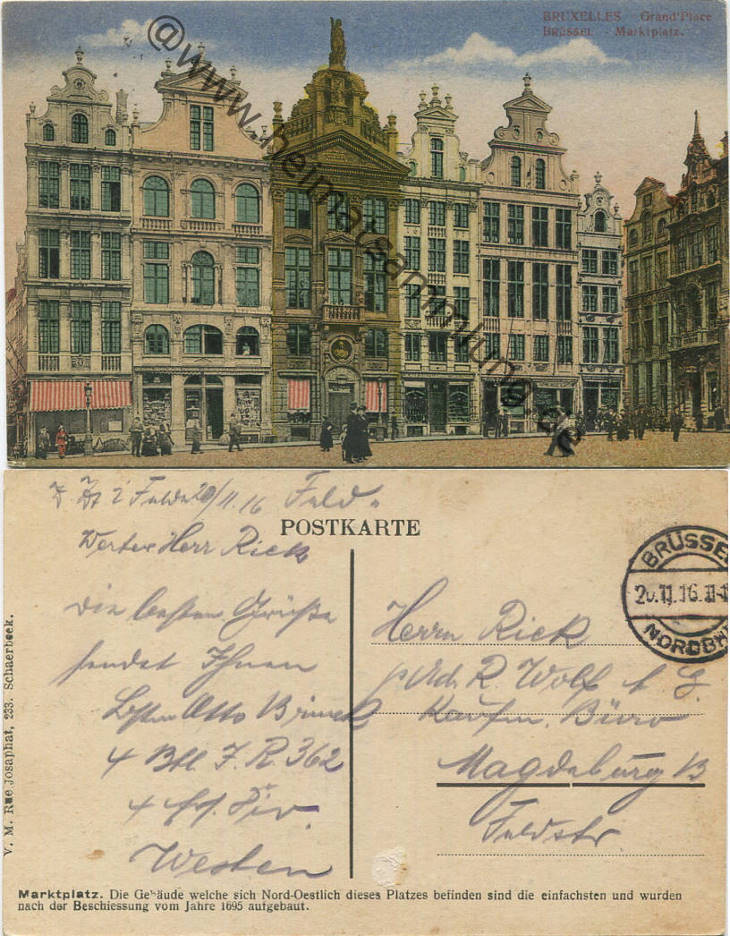 BRUXELLES Grand'Place
BRÜSSEL - Marktplatz.
@www.heimatsammlung.de
Z. Zt i Felde 20/11.16 Feld
POSTKARTE
Werter Herr Rick
die besten Grüße
sendet Ihnen
Otto
4 Btl I.R. 362
4 Div.
Westen
Herrn Rick
p Adr R. Wolf A G.
Kaufm. Büro
Magdeburg B
Feldstr.
BRÜSSEL
20.11.16.11-1
NORDBHF
V. M. Rue Josaphat, 233. Schaerbeek.
Marktplatz. Die Gebäude welche sich Nord-Oestlich dieses Platzes befinden sind die einfachsten und wurden
nach der Beschiessung vom Jahre 1695 aufgebaut.